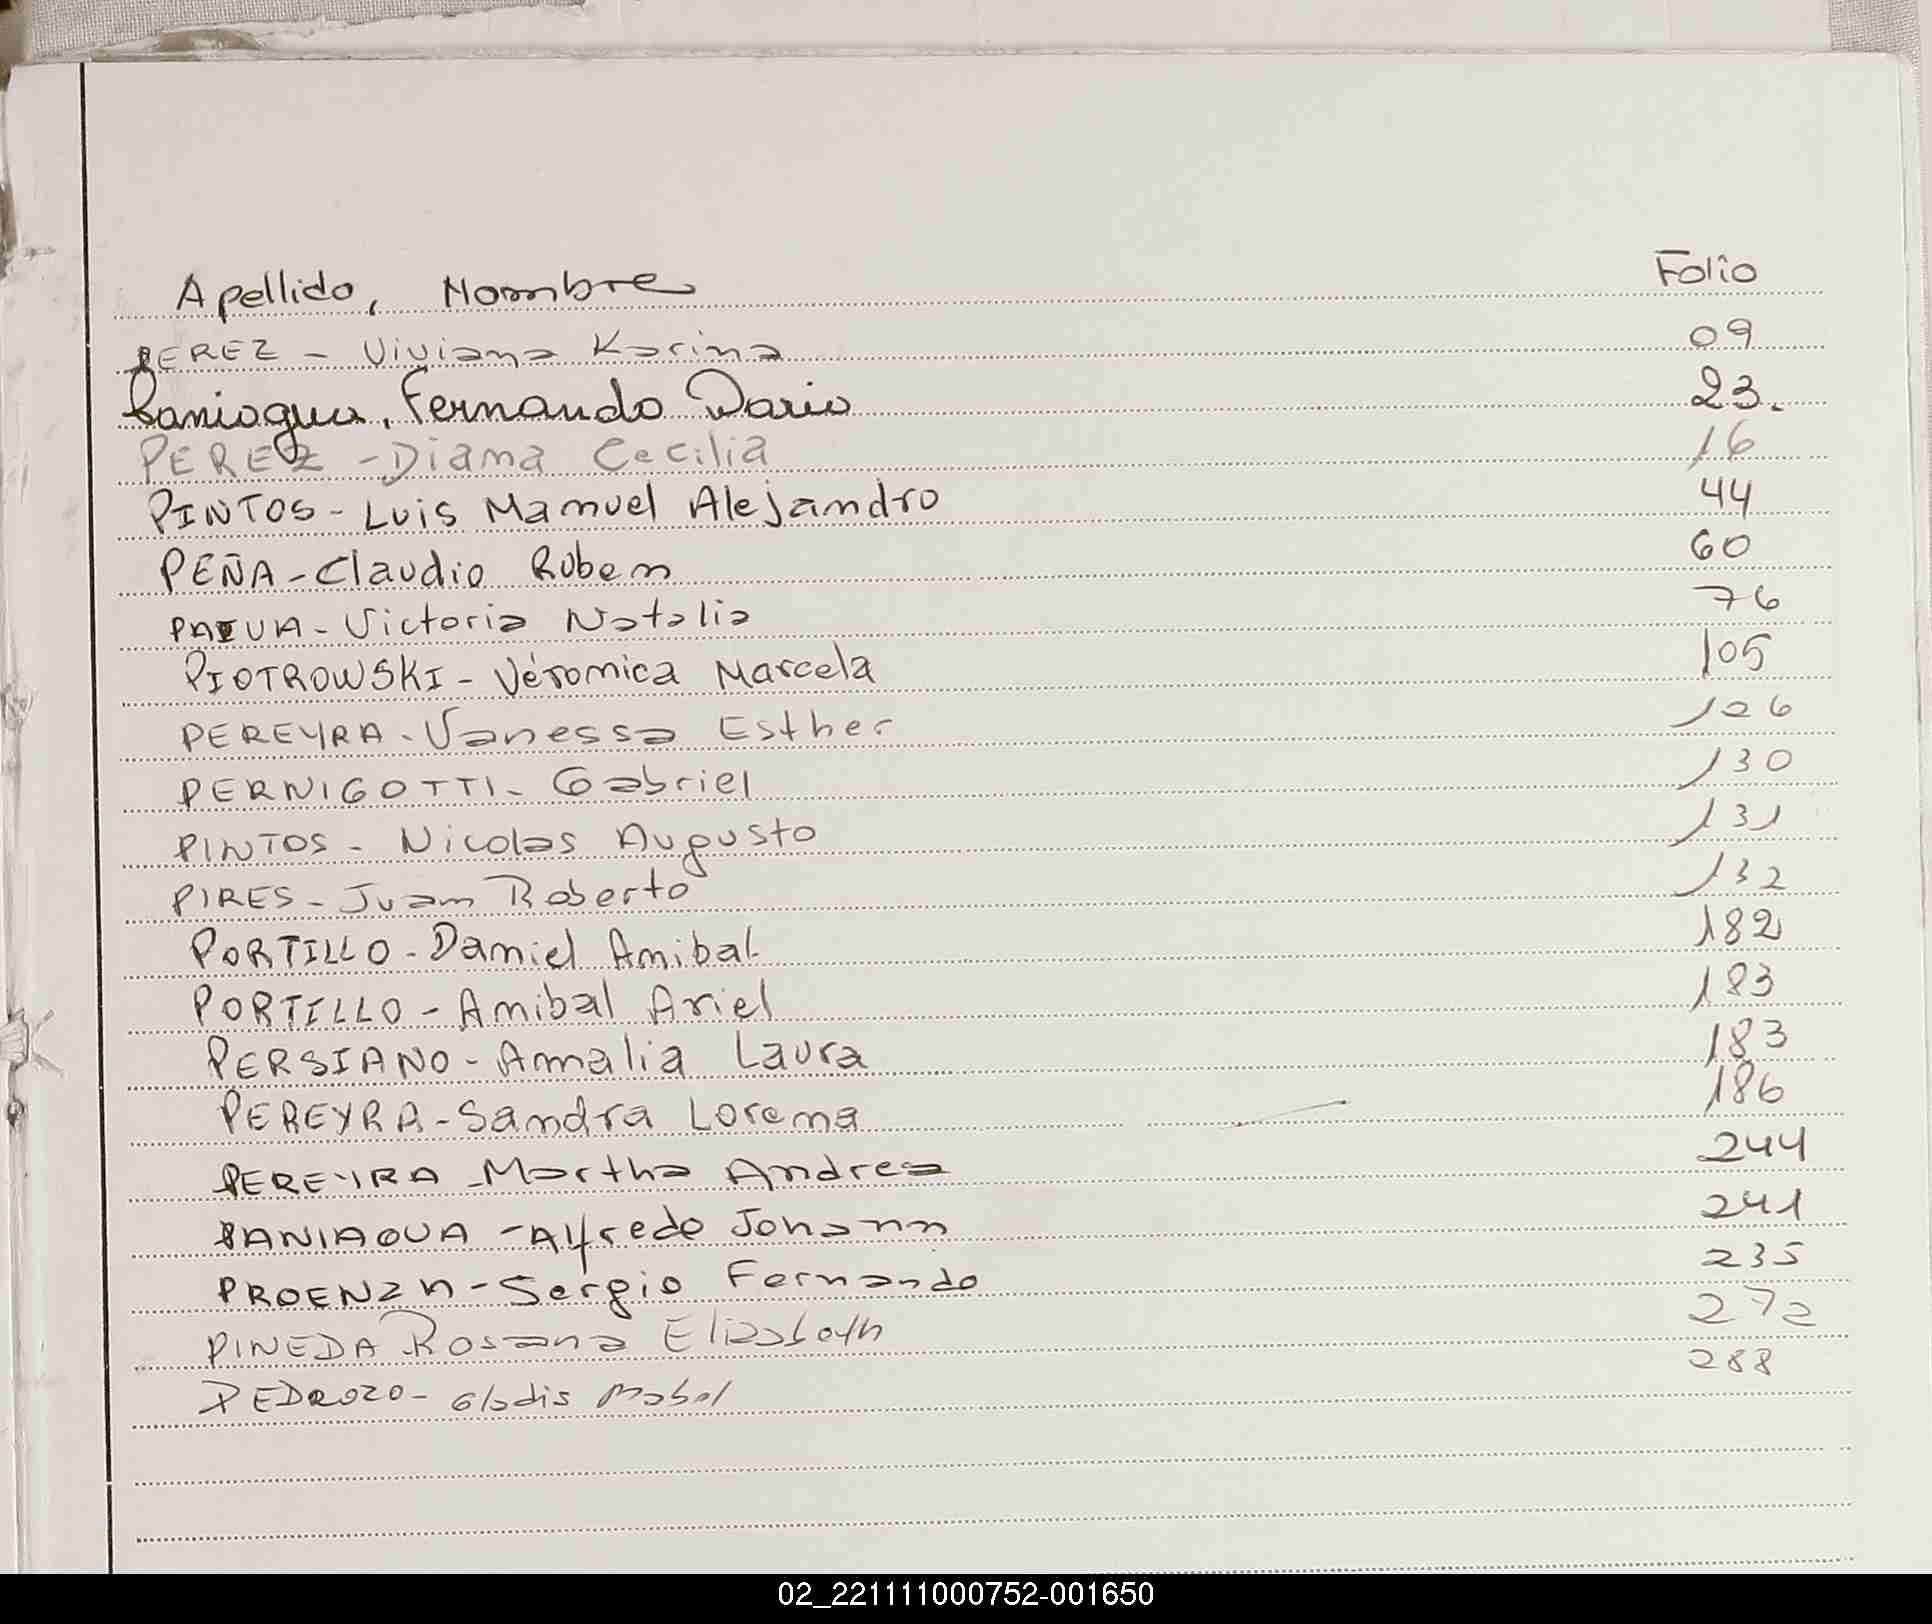 Apellido, Nombre Folio
PEREZ - Viviana Karina 09
Paniagua, Fernando Dario 23.
PEREZ - Diana Cecilia 16
PINTOS - Luis Manuel Alejandro 44
PEÑA - Claudio Ruben 60
PAIUA - Victoria Natalia 76
PIOTROWSKI - Véronica Marcela 105
PEREYRA - Vanessa Esther 126
PERNIGOTTI - Gabriel 130
PINTOS - Nicolas Augusto 131
PIRES - Juan Roberto 132
PORTILLO - Daniel Anibal 182
PORTILLO - Anibal Ariel 183
PERSIANO - Amalia Laura 183
PEREYRA - Sandra Lorena 186
PEREYRA - Martha Andrea 244
PANIAGUA - Alfredo Johann 241
PROENZA - Sergio Fernando 235
PINEDA Rosana Elizabeth 272
PEDROZO - Gladis Mabel 288
02_221111000752-001650